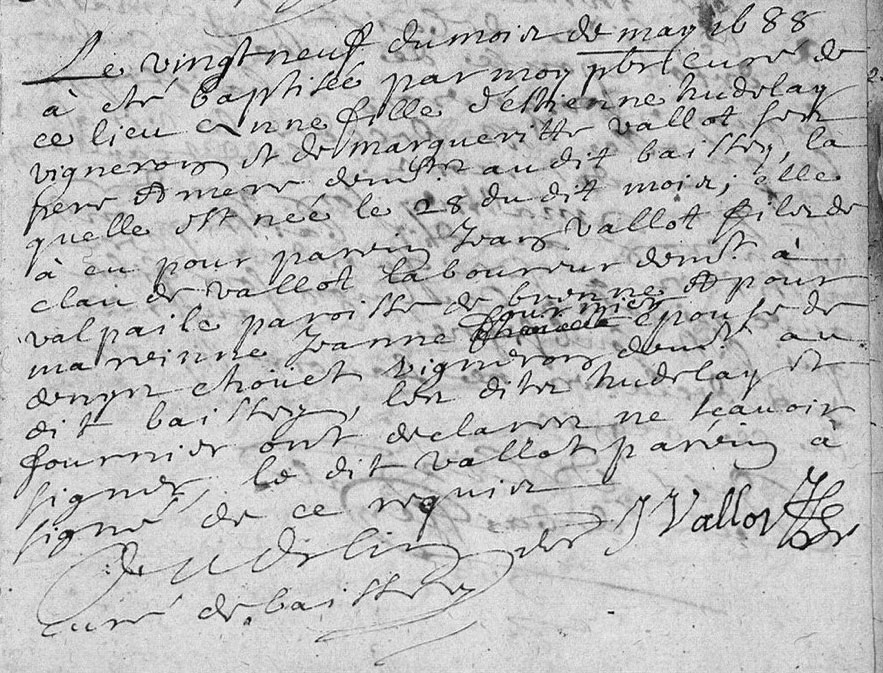 Le vingt neuf du mois de may 1688
à eté baptisée par moy pbre curé de
ce lieu Anne fille d'estienne hudelay
vigneron et de margueritte vallot ses
pere et mere demt audit baissey, la
quelle est née le 28 du dit mois; elle
à eu pour parein Jean vallot fils de
claude vallot laboureur demt à
valpaile paroisse de brenne et pour
mareinne Jeanne fournier epouse de
denys chouet vigneron demt au
dit baissey, les dites hudelay et
fournier ont declarer ne sçavoir
signer, le dit vallot parein à
signé de ce requis
J Vallot
curé de baissey